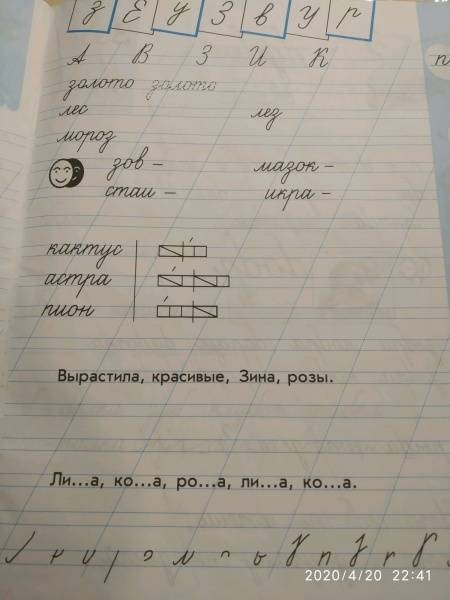 З Е У З В У Р
А В З И К
золото золото
лес лез
мороз
зов – мазок –
стаи – икра –
кактус
астра
пион
Вырастила, красивые, Зина, розы.
Ли...а, ко...а, ро...а, ли...а, ко...а.
2020/4/20 22:41